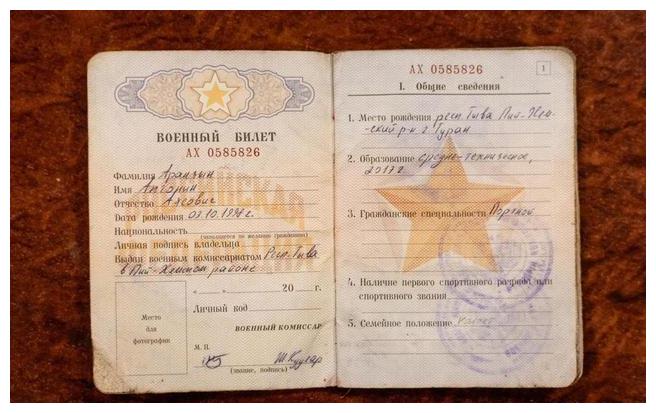 ВОЕННЫЙ БИЛЕТ
АХ 0585826
Фамилия Аранзын
Имя
Отчество
Дата рождения 07.10.199
Национальность
(заполняется по желанию гражданина)
Личная подпись владельца
Выдан военным комиссариатом Респ. Тыва
в Пий-Хемском районе
20 г.
Личный код
ВОЕННЫЙ КОМИССАР
Место
для
фотографии
М. П.
(звание, подпись)
АХ 0585826
1
I. Общие сведения
1. Место рождения респ. Тыва Пий-Хем-
ский р-н г. Туран
2. Образование средне-техническое,
2017г
3. Гражданские специальности Портной
4. Наличие первого спортивного разряда или
спортивного звания
5. Семейное положение холост